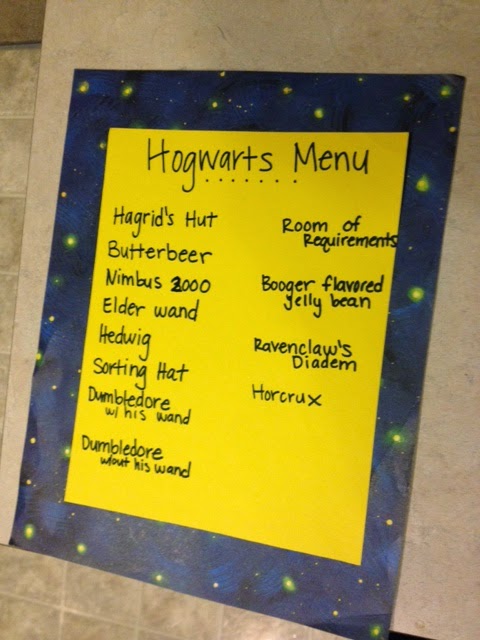 Hogwarts Menu
Hagrid's Hut
Butterbeer
Nimbus 2000
Elder wand
Hedwig
Sorting Hat
Dumbledore
w/ his wand
Dumbledore
w/out his wand
Room of
Requirements
Booger flavored
jelly bean
Ravenclaw's
Diadem
Horcrux